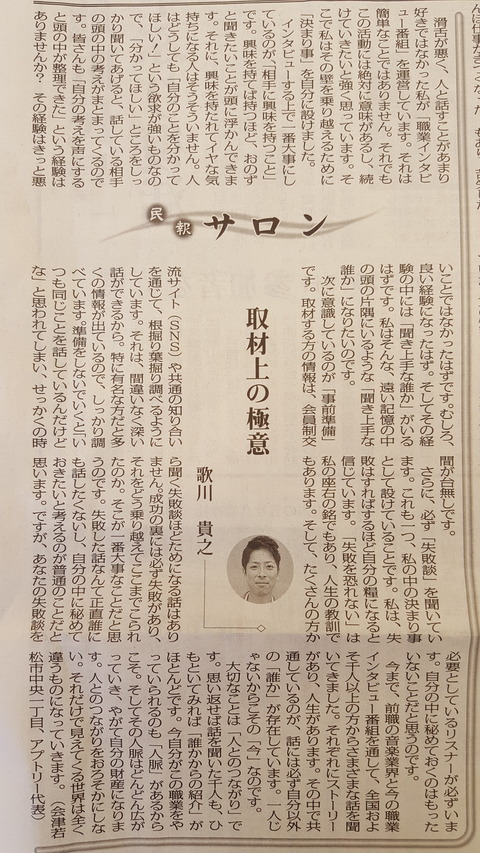 滑舌が悪く、人と話すことがあまり
好きではなかった私が「職業インタビ
ュー番組」を運営しています。それは
簡単なことではありません。それでも
この活動には絶対に意味があるし、続
けていきたいと強く思っています。そ
こで私はその壁を乗り越えるために
「決まり事」を自分に設けました。
インタビューする上で一番大事にし
ているのが「相手に興味を持つこと」
です。興味を持てば持つほど、おのず
と聞きたいことが頭に浮かんできま
す。それに、興味を持たれてイヤな気
持ちになる人はそうそういません。人
はどうしても「自分のことを分かって
ほしい！」という欲求が強いものなの
で、「分かってほしい」ところをしっ
かり聞いてあげると、話している相手
の頭の中の考えがまとまってくるので
す。皆さんも「自分の考えを声にする
と頭の中が整理できた」という経験は
ありませんか？　その経験はきっと悪
民報サロン
いことではなかったはずです。むしろ、
良い経験になったはず。そしてその経
験の中には「聞き上手な誰か」がいる
はずです。私はそんな、遠い記憶の中
の頭の片隅にいるような「聞き上手な
誰か」になりたいのです。
次に意識しているのが「事前準備」
です。取材する方の情報は、会員制交
取材上の極意
流サイト（SNS）や共通の知り合い
を通じて、根掘り葉掘り調べるように
しています。それは、間違いなく深い
話ができるから。特に有名な方だと多
くの情報が出ているので、しっかり調
べていきます。準備をしないでいくと「い
つも同じことを話しているんだけど
な」と思われてしまい、せっかくの時
間が台無しです。
さらに、必ず「失敗談」を聞いてい
ます。これも一つ、私の中の決まり事
として設けていることです。私は、失
敗はすればするほど自分の糧になると
信じています。「失敗を恐れない」は
私の座右の銘でもあり、人生の教訓で
もあります。そして、たくさんの方か
歌川　貴之
ら聞く失敗談はどためになる話はあり
ません。成功の裏には必ず失敗があり、
それをどう乗り越えてここまでこられ
たのか。そこが一番大事なことだと思
うのです。失敗した話なんて正直誰に
も話したくないし、自分の中に秘めて
おきたいと考えるのが普通のことだと
思います。ですが、あなたの失敗談を
必要としているリスナーが必ずいま
す。自分の中に秘めておくのはもった
いないことだと思うのです。
今まで、前職の音楽業界と今の職業
インタビュー番組を通して、全国およ
そ千人以上の方からさまざまな話を聞
いてきました。それぞれにストーリー
があり、人生があります。その中で共
通しているのが、話には必ず自分以外
の「誰か」が存在しています。一人じ
ゃないからこその「今」なのです。
大切なことは「人とのつながり」で
す。思い返せば話を聞いた千人も、ひ
もといてみれば「誰かからの紹介」が
ほとんどです。今自分がこの職業をや
っていられるのも「人脈」があるから
こそ。そしてその人脈はどんどん広が
っていき、やがて自分の財産になりま
す。人とのつながりをおろそかにしな
い。それだけで見えてくる世界は全く
違うものになっていきます。（会津若
松市中央一丁目、アイトリー代表）